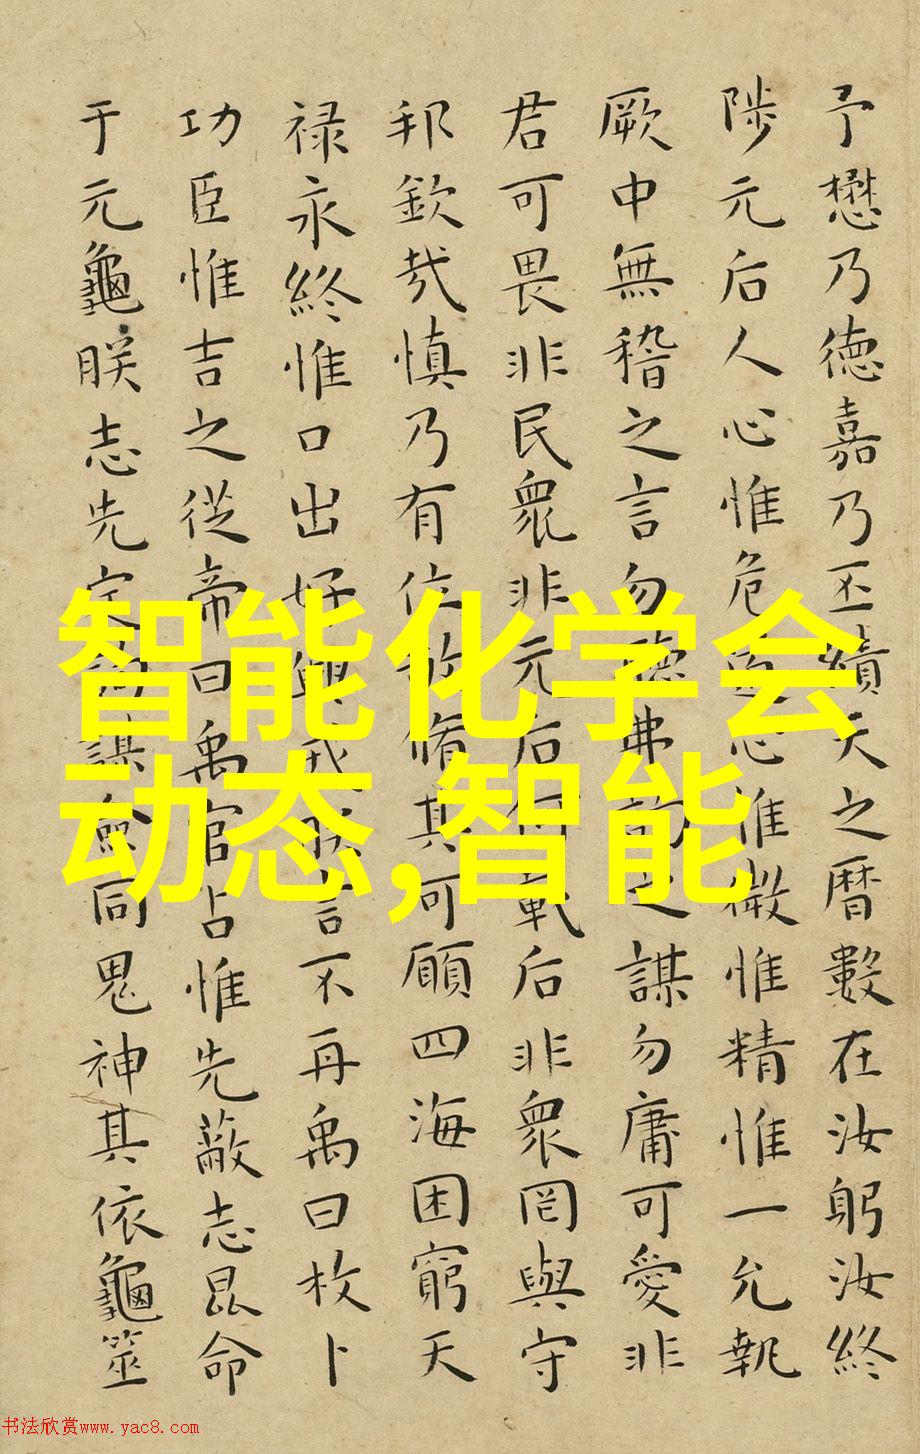 予懋乃德嘉乃丕績天之曆數在汝躬汝終
陟元后人心惟危道心惟微惟精惟一允執
厥中無稽之言勿聽弗詢之謀勿庸可愛非
君可畏非民衆非元后何戴后非衆罔與守
邦欽哉慎乃有位敬脩其可願四海困窮天
禄永終惟口出好興戎朕言不再禹曰枚卜
功臣惟吉之從帝曰禹官占惟先蔽志昆命
于元龜朕志先定詢謀僉同鬼神其依龜筮
智能化学会
动态,智能
书法欣赏www.yac8.com